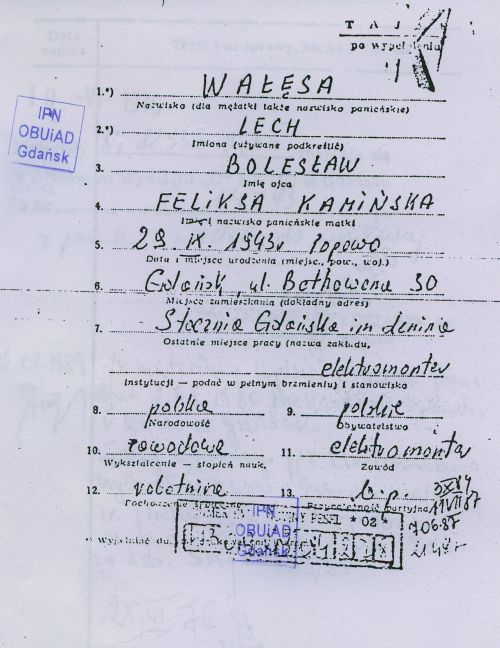 TAJ
po wypełnieniu
1.*) WAŁĘSA
Nazwisko (dla mężatki także nazwisko panieńskie)
IPN
OBUiAD
Gdańsk
2.*) LECH
Imiona (używane podkreślić)
3. BOLESŁAW
Imię ojca
4. FELIKSA KAMIŃSKA
Imię i nazwisko panieńskie matki
5. 29. IX. 1943r Popowo
Data i miejsce urodzenia (miejsc., pow., woj.)
6. Gdańsk, ul. Bethowena 30
Miejsce zamieszkania (dokładny adres)
7. Stocznia Gdańska im Lenina
Ostatnie miejsce pracy (nazwa zakładu,
elektromonter
instytucji — podać w pełnym brzmieniu) i stanowisko
8. polska 9. polskie
Narodowość Obywatelstwo
10. zawodowe 11. elektromonter
Wykształcenie — stopień nauk. Zawód
12. robotnicze 13. b.p.
Pochodzenie społeczne Przynależność partyjna
PESEL * 02
IPN
OBUiAD
Gdańsk
7.06.87
* Wypełniać